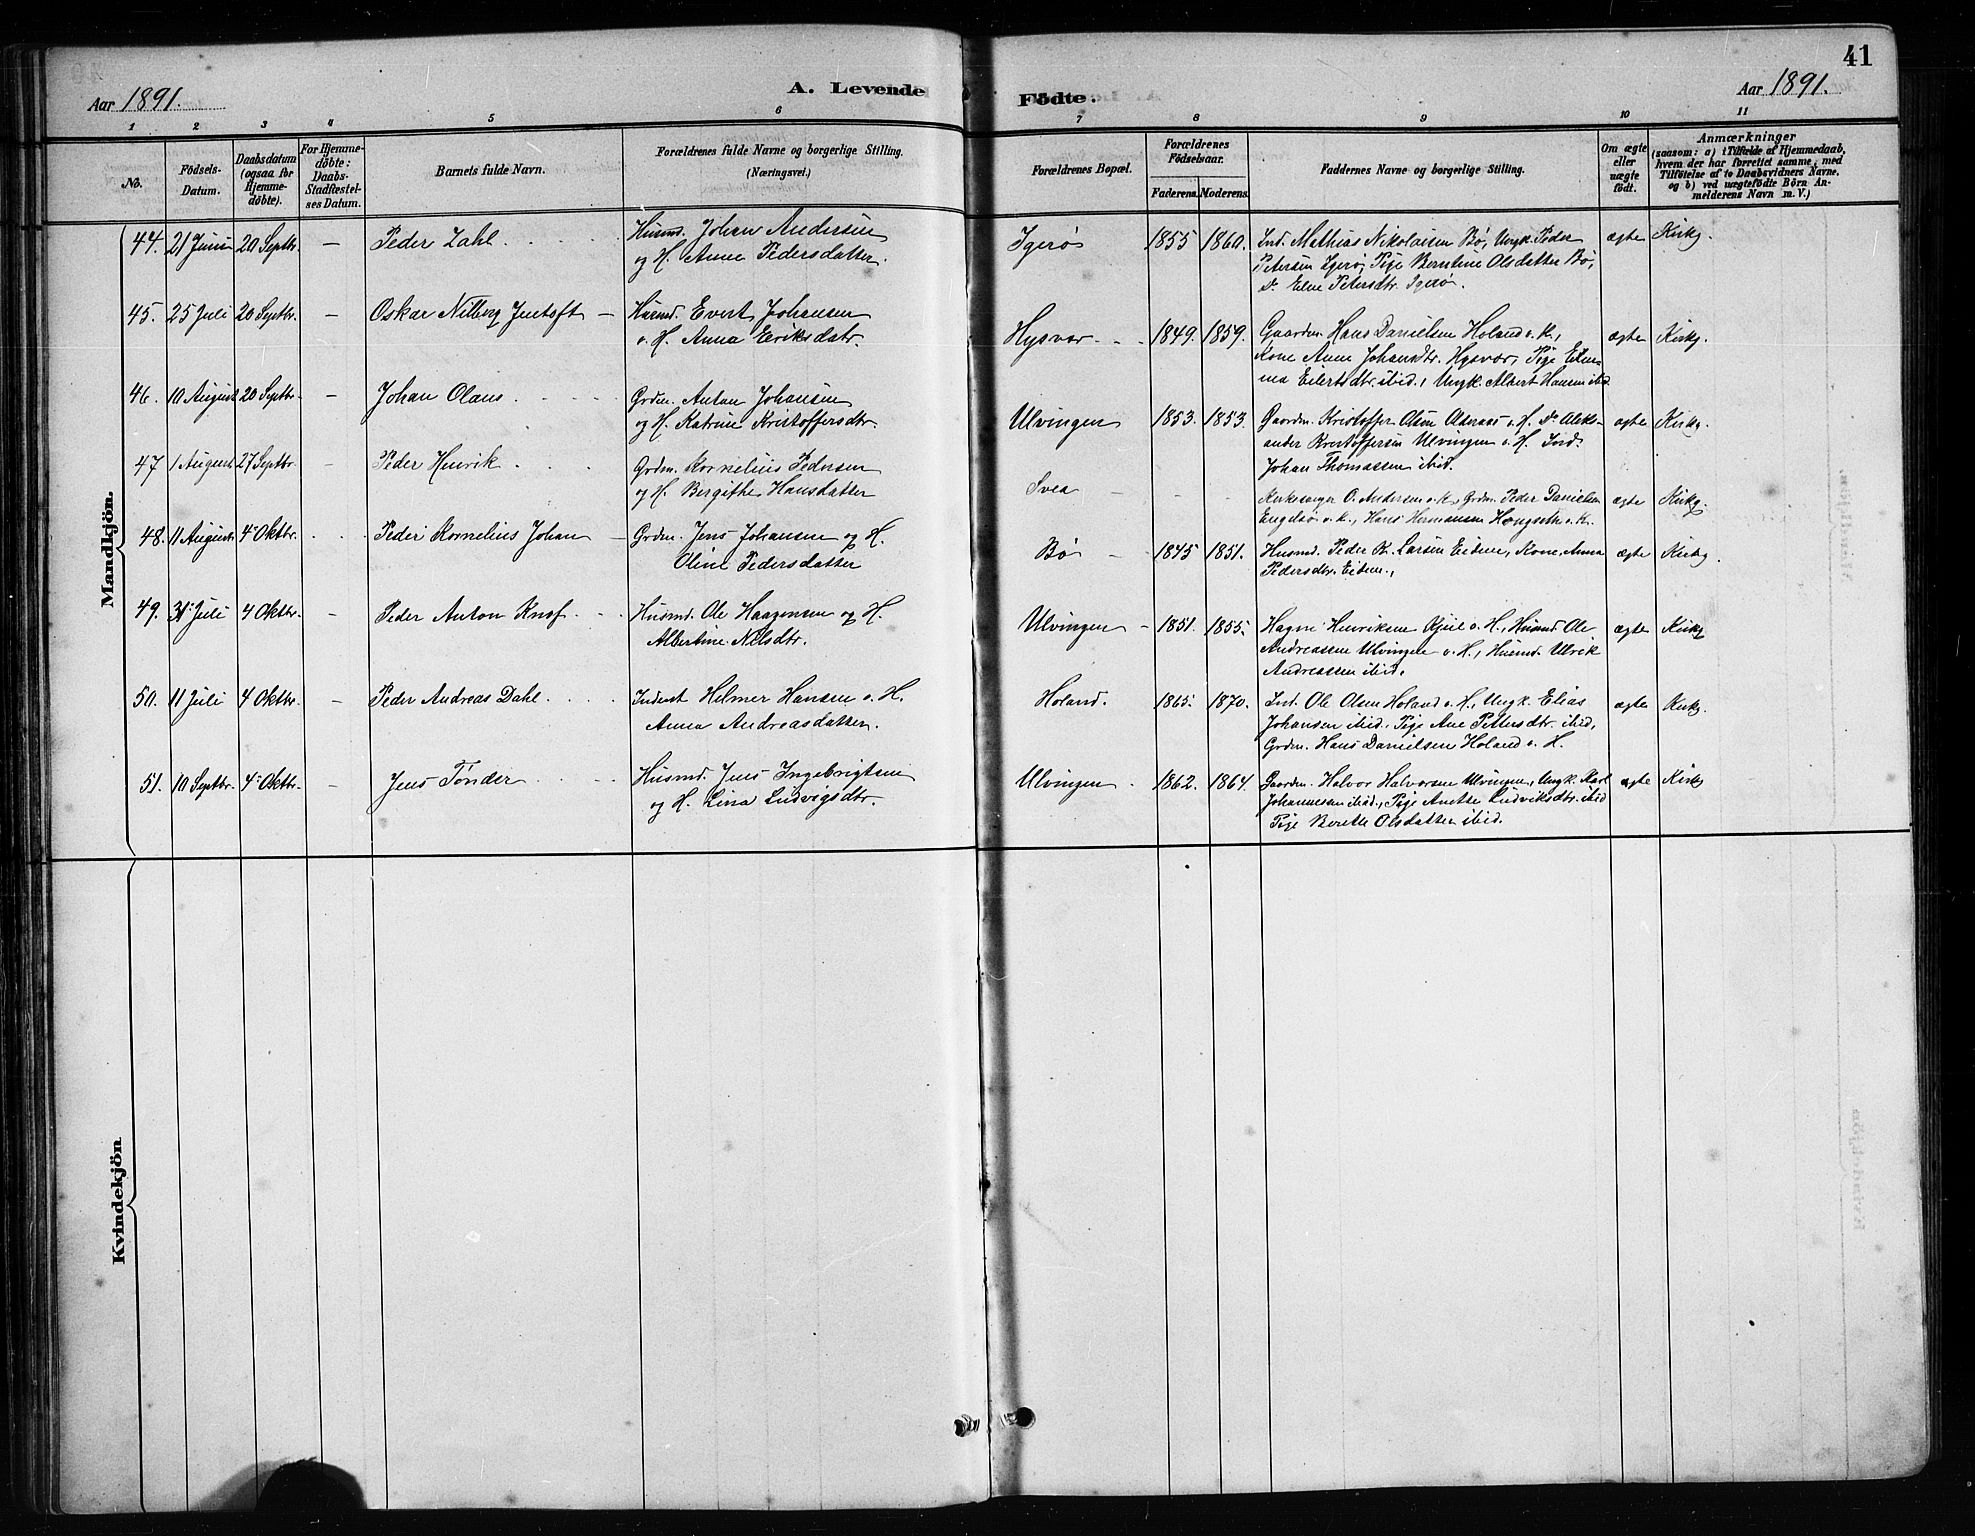 41
Aar 1891.
A. Levende
Födte.
Aar 1891.
1 2 3 4 5 6 7 8 9 10 11
No.
Födsels-
Datum.
Daabsdatum
(ogsaa for
Hjemme-
döbte).
For Hjemme-
döbte:
Daabs-
Stadfæstel-
ses Datum.
Barnets fulde Navn.
Forældrenes fulde Navne og borgerlige Stilling.
(Næringsvei.)
Forældrenes Bopæl.
Forældrenes
Födselsaar.
Faderens. Moderens.
Faddernes Navne og borgerlige Stilling.
Om ægte
eller
uægte
födt.
Anmærkninger
(saasom: a) i Tilfælde af Hjemmedaab,
hvem der har forrettet samme, med
Tilföielse af to Daabsvidners Navne,
og b) ved uægtefödte Börn An-
melderens Navn m. V.)
Mandkjön.
44. 21 Juni 20 Septbr. — Peder Zahl Husmd. Johan Andersen
og H. Anne Pedersdatter.
Igerø 1855 1860. Ind. Mathias Nikolaisen Bø, Ungk. Peder
Petersen Igerø, Pige Berntine Olsdatter Bø,
do Elne Petersdtr. Igerø.
ægte Kirkg.
45. 25 Juli 20 Septbr. — Oskar Nilberg Jentoft — Husmd. Evert Johansen
o. H. Anna Eriksdatr.
Hysvær 1849. 1859. Gaardm. Hans Danielsen Holand o. K.,
Kone Anne Johansdtr. Hysvær, Pige
Eilertsdtr. ibid., Ungk. Albert Hansen ibid
ægte Kirkg.
46. 10 August 20 Septbr. — Johan Olaus Grdm. Anton Johansen
og H. Katrine Kristoffersdtr.
Ulvingen 1853. 1853. Gaardm. Kristoffer Olsen o. H. do Aleks-
ander Kristoffersen Ulvingen o. H. Ind.
Johan Thomassen ibid.
ægte Kirkg.
47 1 August 27 Septbr. — Peder Henrik Grdm. Kornelius Pedersen
og H. Bergithe Hansdatter
Svea — — — Kirkesanger O. Andersen o. K., Grdm. Peder Danielsen
Engelsø o. K., Hans Hermansen Hongseth o. K.
ægte Kirkg.
48. 11 August 4 Oktbr. Peder Kornelius Johan — Grdm. Jens Johansen og H.
Oline Pedersdatter
Bø — 1845 1851. Husmd. Peder K. Larsen Eidem, Kone Anna
Pedersdtr. Eidem.,
ægte Kirkg.
49. 31 Juli 4 Oktbr. — Peder Anton Knof Husmd. Ole Haagensen og H.
Albertine Nilsdtr.
Ulvingen — 1851. 1855. Hagen Henriksen o. H., Husmd. Ole
Andreassen Ulvingen o. H., Husmd. Ulrik
Andreassen ibid.
ægte Kirkg
50. 11 Juli 4 Oktbr. — Peder Andreas Dahl Inderst Helmer Hansen o. H.
Anna Andreasdatter.
Holand. 1865. 1870. Int. Ole Olsen Holand o. H., Ungk. Elias
Johansen ibid., Pige Ane Pettersdtr. ibid,
Grdm. Hans Danielsen Holand o. H.
ægte Kirkg.
51. 10 Septbr. 4 Oktbr. — Jens Tønder Husmd. Jens Ingebrigtsen
og H. Lina Ludvigsdtr.
Ulvingen 1862. 1864. Gaardm. Halvor Halvorsen Ulvingen, Ungk. Karl
Johannesen ibid., Pige Anette Ludviksdtr. ibid
Pige Berette Olsdatter ibid.
ægte Kirkg
Kvindekjön